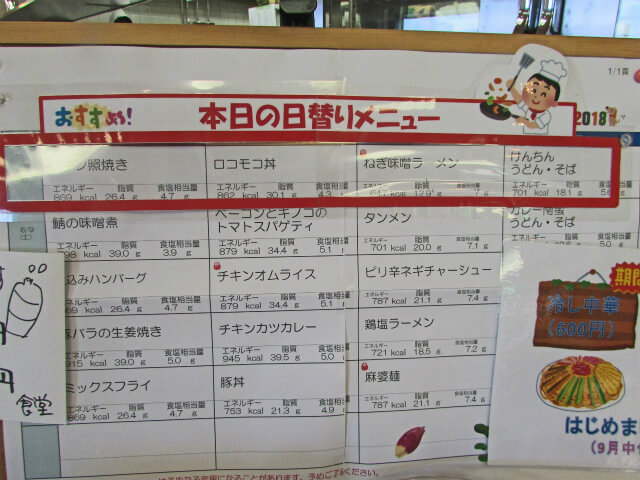 1/1頁
おすすめ! 本日の日替りメニュー 2018
照焼き ロコモコ丼 ねぎ味噌ラーメン けんちん
うどん・そば
エネルギー 脂質 食塩相当量 エネルギー 脂質 食塩相当量 エネルギー 脂質 食塩相当量 エネルギー 脂質 食塩相当量
869 kcal 26.4 g 4.7 g 862 kcal 30.1 g 4.3 kcal 12.9 g 7 g 701 kcal 18.1 g
6/9
(土)
鯖の味噌煮 ベーコンとキノコの
トマトスパゲティ タンメン カレー南蛮
うどん・そば
エネルギー 脂質 食塩相当量 エネルギー 脂質 食塩相当量 エネルギー 脂質 食塩相当量
798 kcal 39.0 g 3.9 g 879 kcal 34.4 g 5.1 701 kcal 20.0 g 7.1 g
込みハンバーグ チキンオムライス ピリ辛ネギチャーシュー
エネルギー 脂質 食塩相当量 エネルギー 脂質 食塩相当量 エネルギー 脂質 食塩相当量
869 kcal 26.4 g 4.7 g 879 kcal 34.4 g 5.1 787 kcal 21.1 g 7.4 g
豚バラの生姜焼き チキンカツカレー 鶏塩ラーメン
エネルギー 脂質 食塩相当量 エネルギー 脂質 食塩相当量 エネルギー 脂質 食塩相当量
915 kcal 39.0 g 5.0 g 945 kcal 39.5 g 5.0 721 kcal 18.5 g 7.2 g
ミックスフライ 豚丼 麻婆麺
エネルギー 脂質 食塩相当量 エネルギー 脂質 食塩相当量 エネルギー 脂質 食塩相当量
869 kcal 26.4 g 4.7 g 753 kcal 21.3 g 4.9 787 kcal 21.1 g 7.4 g
変更になることがあります。予めご了承ください。
す
円
円
食堂
期間
冷し中華
(600円)
はじめま
(9月中